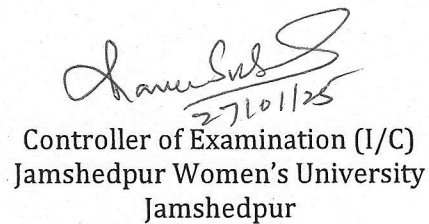 27/01/25
Controller of Examination (I/C)
Jamshedpur Women's University
Jamshedpur